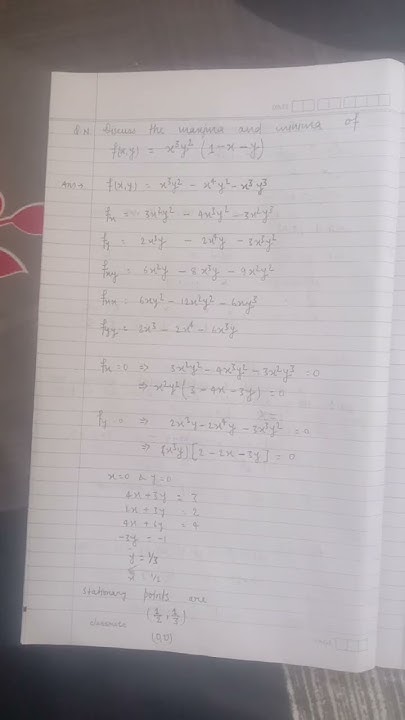 DATE
Q.N Discuss the maxima and minima of
f(x,y) = x³y² (1-x-y)
Ans→ f(x,y) = x³y² - x⁴y² - x³y³
fx = 3x²y² - 4x³y² - 3x²y³
fy = 2x³y - 2x⁴y - 3x³y²
fxy = 6x²y - 8x³y - 9x²y²
fxx = 6xy² - 12x²y² - 6xy³
fyy = 2x³ - 2x⁴ - 6x³y
fx = 0 ⇒ 3x²y² - 4x³y² - 3x²y³ = 0
⇒ x²y² (3 - 4x - 3y) = 0
fy = 0 ⇒ 2x³y - 2x⁴y - 3x³y² = 0
⇒ (x³y) [2 - 2x - 3y] = 0
x=0 & y=0
4x + 3y = 3
2x + 3y = 2
4x + 6y = 4
-3y = -1
y = 1/3
x = 1/2
Stationary points are
(1/2, 1/3)
classmate
(0,0)
PAGE